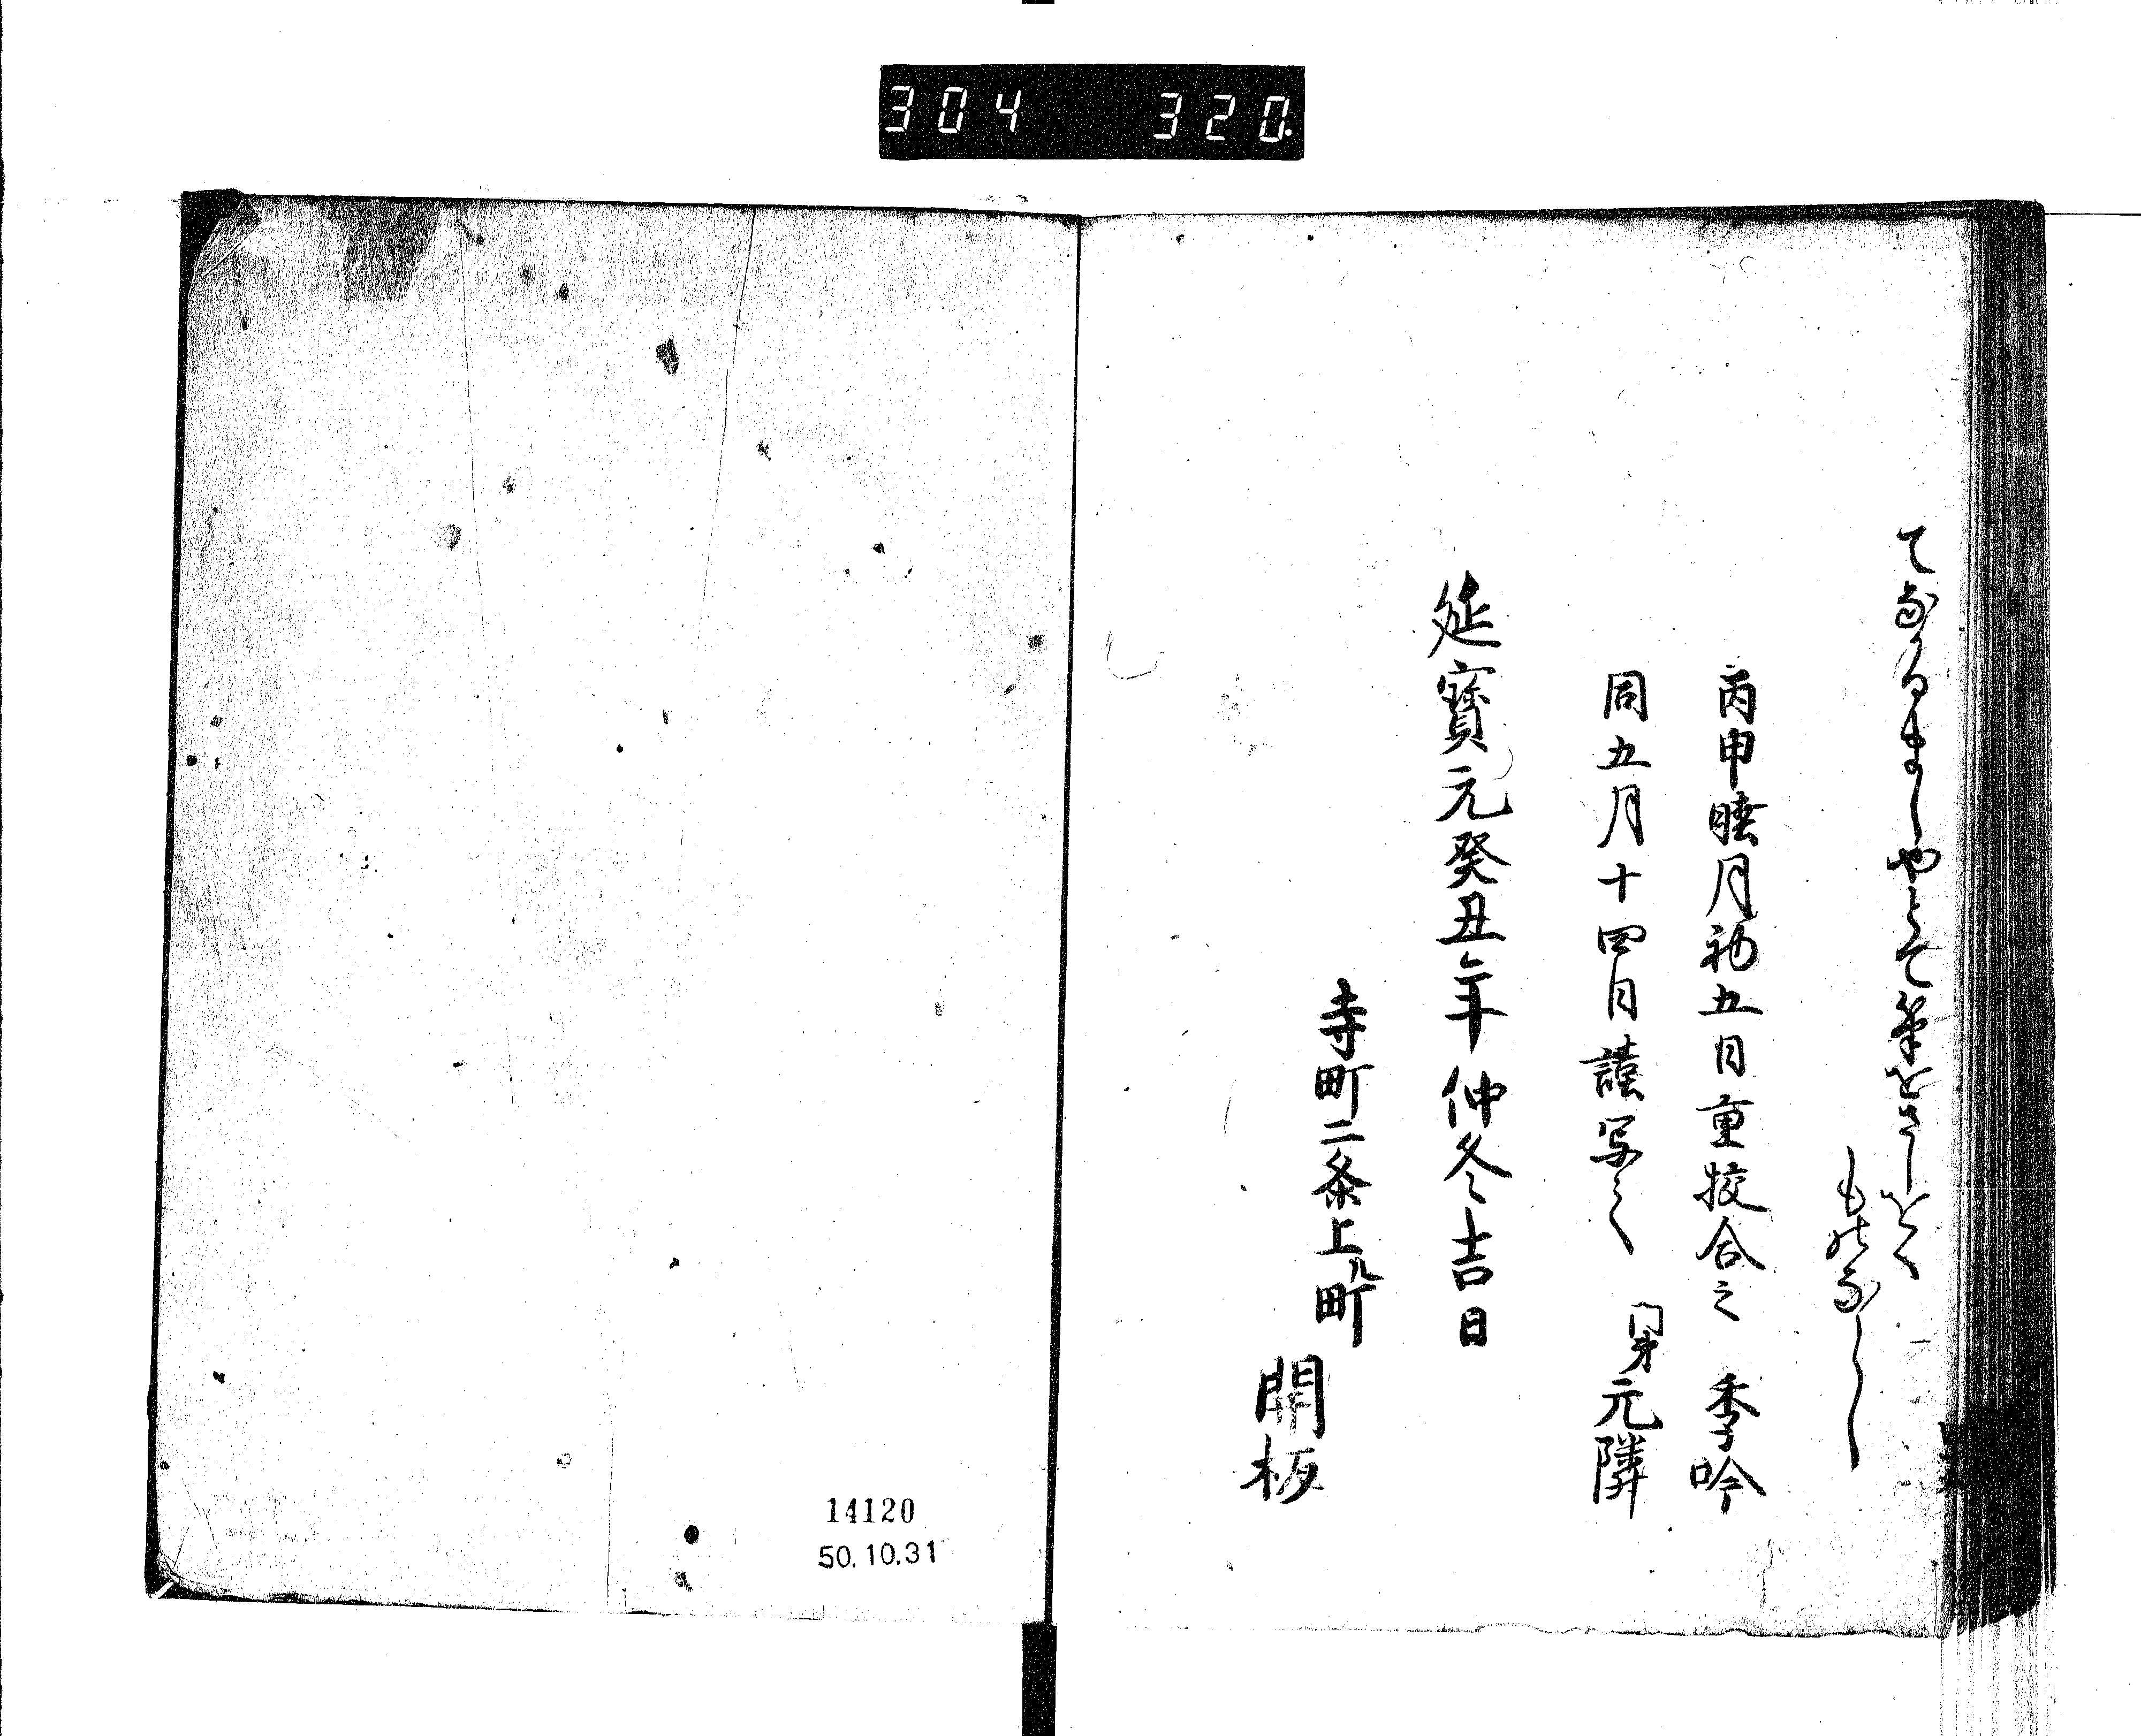 304 320
てなるましやとて筆をさしをく
ものならし
丙申睦月初五日重挍合之 季吟
同五月十四日謹写之 門弟元隣
延寶元癸丑年仲冬吉日
寺町二条上ル町
開板
14120
50.10.31